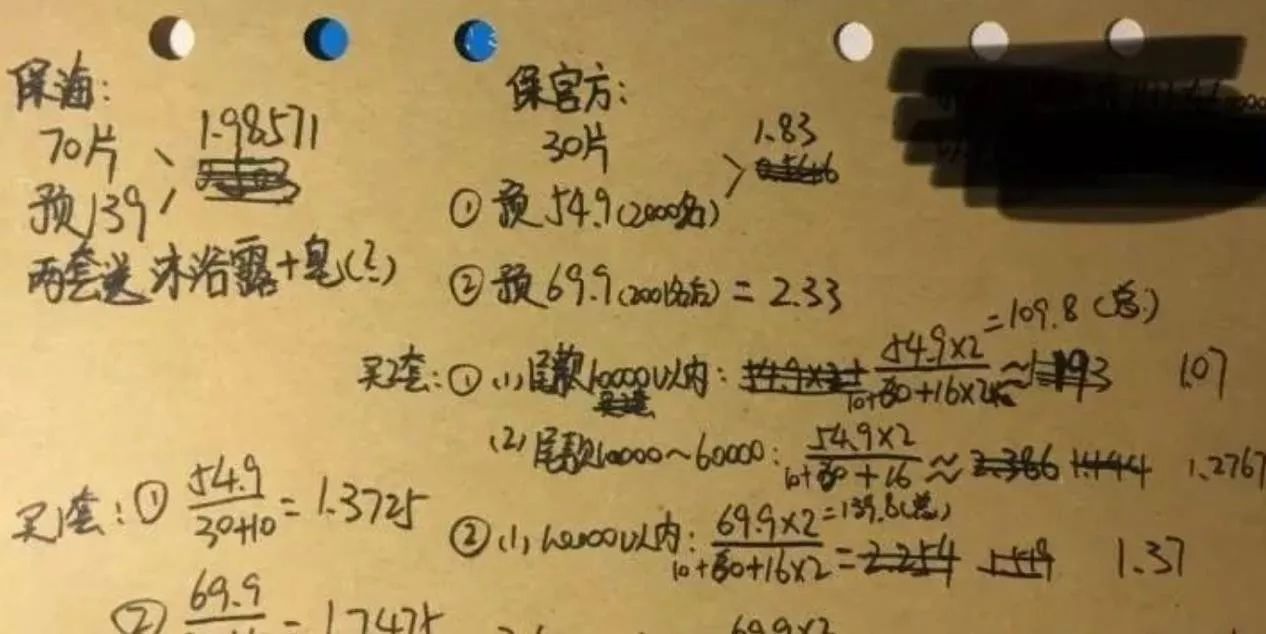 保海:
70片
1.98571
预139
两套送沐浴露+皂(?)
保官方:
30片
1.83
① 预54.9(2000名)
② 预69.9(2000名后) = 2.33
买2套: ① (1) 尾款10000以内: 54.9×2 = 109.8 (总)
10+60+16×2
≈ 1.07
(2) 尾款10000~60000: 54.9×2
10+60+16
≈ 1.2767
② (1) 10000以内: 69.9×2 = 139.8(总)
10+60+16×2
= 1.37
买1套: ① 54.9
30+10
= 1.3725
② 69.9
= 1.7475
69.9×2